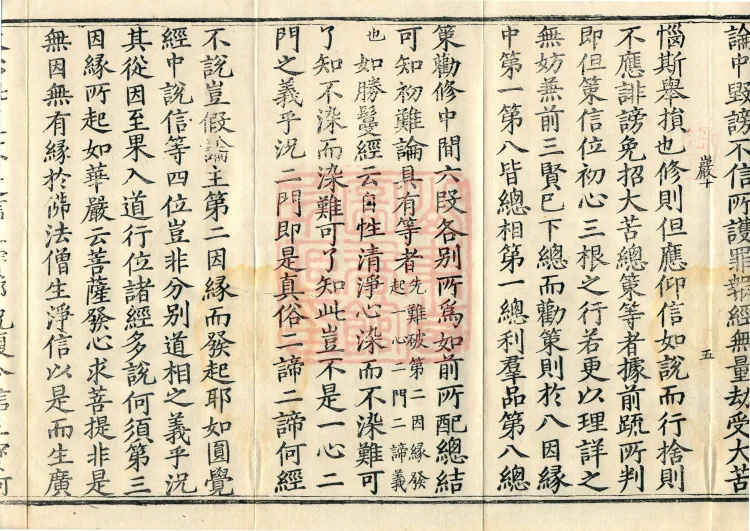 論中毀謗不信所護罪報經無量劫受大苦
惱斯舉損也修則但應仰信如說而行捨則
不應誹謗免招大苦總策等者據前疏所判
即但策信位初心三根之行若更以理詳之
無妨兼前三賢已下總而勸策則於八因縁
中第一第八皆總相第一總利羣品第八總
巖十
五
策勸修中間六段各別所爲如前所配總結
可知初難論具有等者先難破第二因縁發
起一心二門二諦義
也如勝鬘經云自性清淨心染而不染難可
了知不染而染難可了知此豈不是一心二
門之義乎況二門即是真俗二諦二諦何經
不說豈假論主第二因縁而發起耶如圓覺
經中說信等四位豈非分別道相之義乎況
其從因至果入道行位諸經多說何須第三
因縁所起如華嚴云菩薩發心求菩提非是
無因無有縁於佛法僧生淨信以是而生廣